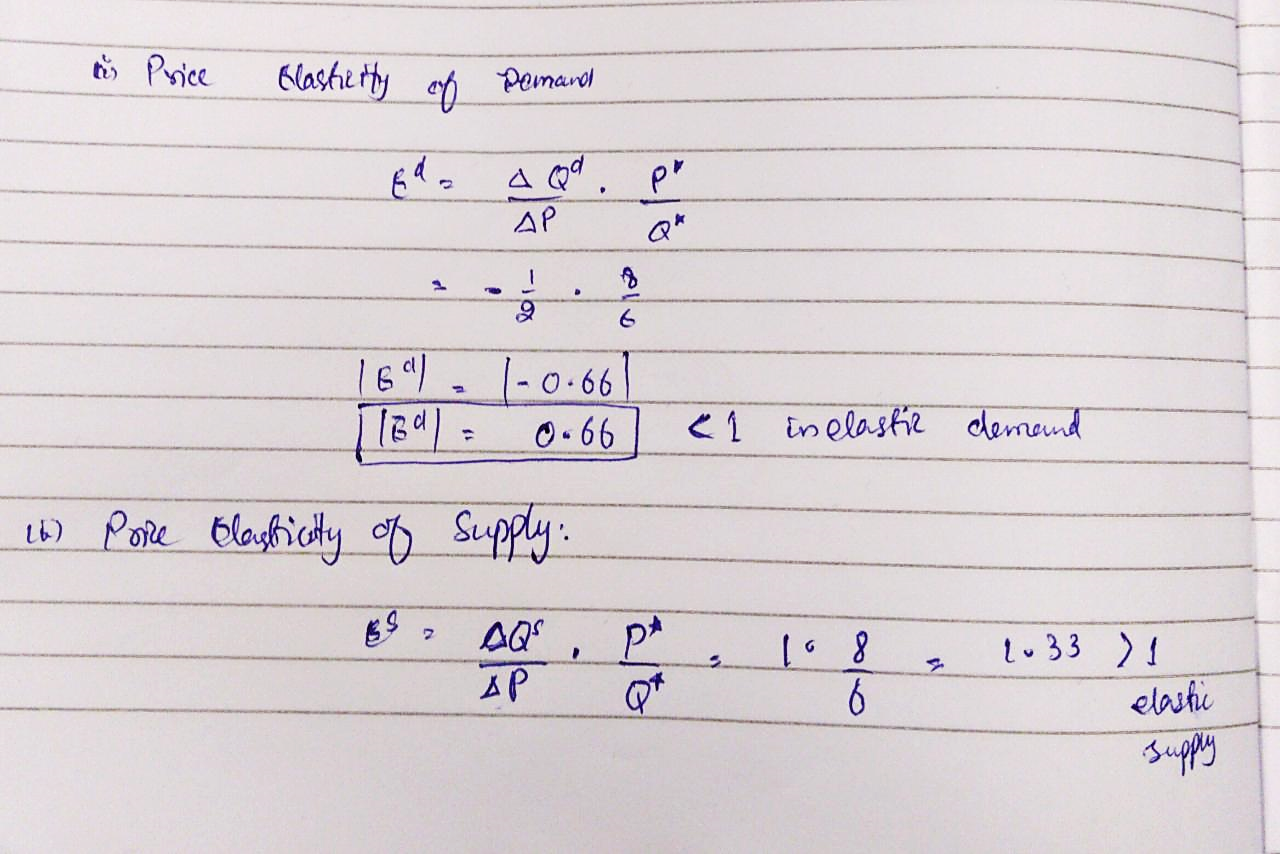 (i) Price Elasticity of Demand
E^d = ΔQ^d/ΔP . P*/Q*
= - 1/2 . 8/6
|E^d| = |-0.66|
|E^d| = 0.66 < 1 inelastic demand
(ii) Price Elasticity of Supply:
E^s = ΔQ^s/ΔP . P*/Q* = 1 . 8/6 = 1.33 > 1
elastic
supply